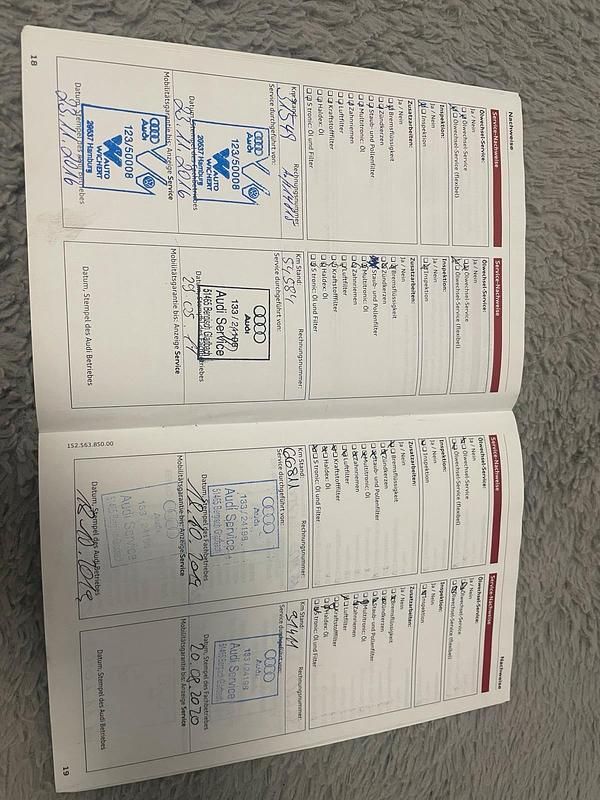 Nachweise
Service-Nachweise
Ölwechsel-Service:
Ja / Nein
Ölwechsel-Service
Ölwechsel-Service (flexibel)
Inspektion:
Ja / Nein
Inspektion
Zusatzarbeiten:
Ja / Nein
Bremsflüssigkeit
Zündkerzen
Staub- und Pollenfilter
Multitronic: Öl
Zahnriemen
Luftfilter
Kraftstofffilter
Haldex: Öl
S tronic: Öl und Filter
Rechnungsnummer:
Service durchgeführt von:
Audi
123/50008
AUTO
WICHERT
29837 Hamburg
23.11.2016
Mobilitätsgarantie bis: Anzeige Service
Audi
123/50008
AUTO
WICHERT
29837 Hamburg
23.11.2016
18
Service-Nachweise
Ölwechsel-Service:
Ja / Nein
Ölwechsel-Service
Ölwechsel-Service (flexibel)
Inspektion:
Ja / Nein
Inspektion
Zusatzarbeiten:
Ja / Nein
Bremsflüssigkeit
Zündkerzen
Staub- und Pollenfilter
Multitronic: Öl
Zahnriemen
Luftfilter
Kraftstofffilter
Haldex: Öl
S tronic: Öl und Filter
Km Stand: Rechnungsnummer:
54584
Service durchgeführt von:
Audi
133 / 24198
Audi Service
51465 Bergisch Gladbach
Mobilitätsgarantie bis: Anzeige Service
Datum, Stempel des Audi Betriebes
152.563.850.00
Service-Nachweise
Ölwechsel-Service:
Ja / Nein
Ölwechsel-Service
Ölwechsel-Service (flexibel)
Inspektion:
Ja / Nein
Inspektion
Zusatzarbeiten:
Ja / Nein
Bremsflüssigkeit
Zündkerzen
Staub- und Pollenfilter
Multitronic: Öl
Zahnriemen
Luftfilter
Kraftstofffilter
Haldex: Öl
S tronic: Öl und Filter
Km Stand: Rechnungsnummer:
Service durchgeführt von:
Audi
133 / 24198
Audi Service
51465 Bergisch Gladbach
Datum, Stempel des Fachbetriebes
Mobilitätsgarantie bis: Anzeige Service
Audi
133 / 24198
Audi Service
Datum, Stempel des Audi Betriebes
Nachweise
Service-Nachweise
Ölwechsel-Service:
Ja / Nein
Ölwechsel-Service
Ölwechsel-Service (flexibel)
Inspektion:
Ja / Nein
Inspektion
Zusatzarbeiten:
Ja / Nein
Bremsflüssigkeit
Zündkerzen
Staub- und Pollenfilter
Multitronic: Öl
Zahnriemen
Luftfilter
Kraftstofffilter
Haldex: Öl
S tronic: Öl und Filter
Km Stand: Rechnungsnummer:
81411
Audi
133 / 24198
Audi Service
51465 Bergisch Gladbach
Datum, Stempel des Fachbetriebes
20.08.2020
Mobilitätsgarantie bis: Anzeige Service
Datum, Stempel des Audi Betriebes
19